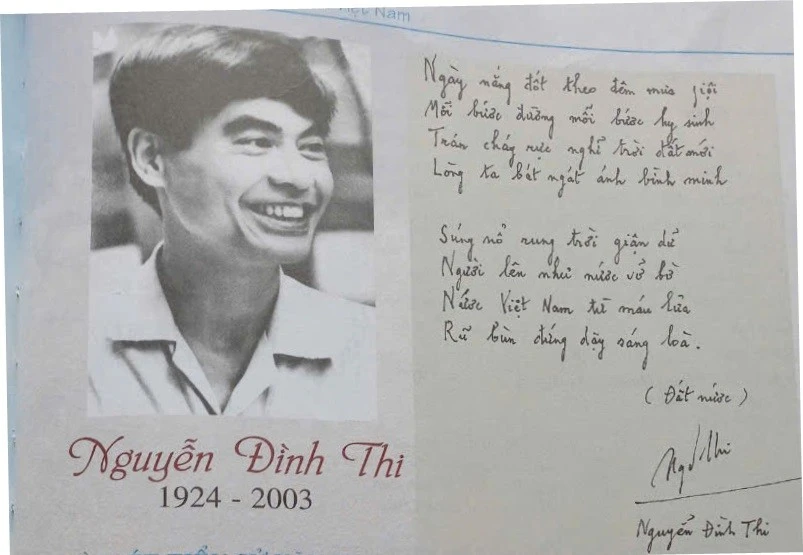 Việt Nam
Nguyễn Đình Thi
1924 - 2003
Ngày nắng đốt theo đêm mưa giội
Mỗi bước đường mỗi bước hy sinh
Trán cháy rực nghĩ trời đất mới
Lòng ta bát ngát ánh bình minh
Súng nổ rung trời giận dữ
Người lên như nước vỡ bờ
Nước Việt Nam từ máu lửa
Rũ bùn đứng dậy sáng loà.
(Đất nước)
Nguyễn Đình Thi